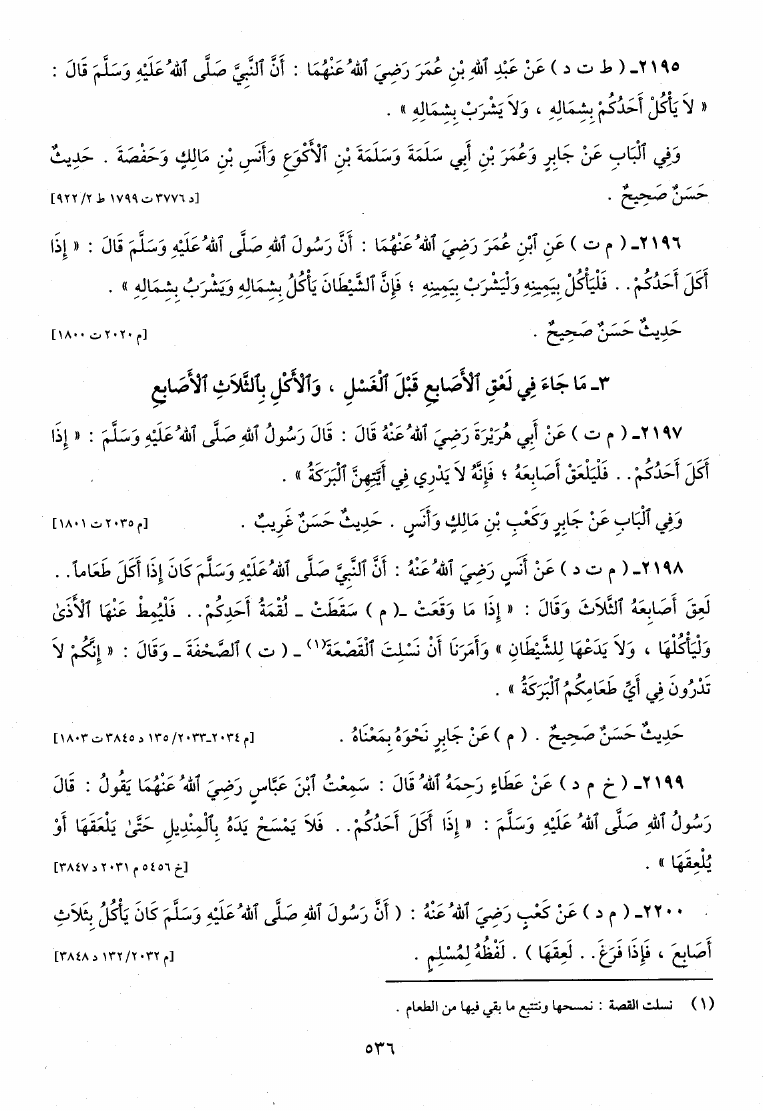 ٢١٩٥ـ ( ط ت د ) عَنْ عَبْدِ ٱللهِ بْنِ عُمَرَ رَضِيَ ٱللهُ عَنْهُمَا : أَنَّ ٱلنَّبِيَّ صَلَّى ٱللهُ عَلَيْهِ وَسَلَّمَ قَالَ :
« لاَ يَأْكُلْ أَحَدُكُمْ بِشِمَالِهِ ، وَلاَ يَشْرَبْ بِشِمَالِهِ » .
وَفِي ٱلْبَابِ عَنْ جَابِرٍ وَعُمَرَ بْنِ أَبِي سَلَمَةَ وَسَلَمَةَ بْنِ ٱلأَكْوَعِ وَأَنَسِ بْنِ مَالِكٍ وَحَفْصَةَ . حَدِيثٌ
حَسَنٌ صَحِيحٌ . [د ٣٧٧٦ ت ١٧٩٩ ط ٩٢٢/٢]
٢١٩٦ـ ( م ت ) عَنِ ٱبْنِ عُمَرَ رَضِيَ ٱللهُ عَنْهُمَا : أَنَّ رَسُولَ ٱللهِ صَلَّى ٱللهُ عَلَيْهِ وَسَلَّمَ قَالَ : « إِذَا
أَكَلَ أَحَدُكُمْ . . فَلْيَأْكُلْ بِيَمِينِهِ وَلْيَشْرَبْ بِيَمِينِهِ ؛ فَإِنَّ ٱلشَّيْطَانَ يَأْكُلُ بِشِمَالِهِ وَيَشْرَبُ بِشِمَالِهِ » .
حَدِيثٌ حَسَنٌ صَحِيحٌ . [م ٢٠٢٠ ت ١٨٠٠]
٣ـ مَا جَاءَ فِي لَعْقِ ٱلأَصَابِعِ قَبْلَ ٱلْغَسْلِ ، وَٱلأَكْلِ بِٱلثَّلاَثِ ٱلأَصَابِعِ
٢١٩٧ـ ( م ت ) عَنْ أَبِي هُرَيْرَةَ رَضِيَ ٱللهُ عَنْهُ قَالَ : قَالَ رَسُولُ ٱللهِ صَلَّى ٱللهُ عَلَيْهِ وَسَلَّمَ : « إِذَا
أَكَلَ أَحَدُكُمْ . . فَلْيَلْعَقْ أَصَابِعَهُ ؛ فَإِنَّهُ لاَ يَدْرِي فِي أَيَّتِهِنَّ ٱلْبَرَكَةُ » .
وَفِي ٱلْبَابِ عَنْ جَابِرٍ وَكَعْبِ بْنِ مَالِكٍ وَأَنَسٍ . حَدِيثٌ حَسَنٌ غَرِيبٌ . [م ٢٠٣٥ ت ١٨٠١]
٢١٩٨ـ ( م ت د ) عَنْ أَنَسٍ رَضِيَ ٱللهُ عَنْهُ : أَنَّ ٱلنَّبِيَّ صَلَّى ٱللهُ عَلَيْهِ وَسَلَّمَ كَانَ إِذَا أَكَلَ طَعَاماً . .
لَعِقَ أَصَابِعَهُ ٱلثَّلاَثَ وَقَالَ : « إِذَا مَا وَقَعَتْ ـ ( م ) سَقَطَتْ ـ لُقْمَةُ أَحَدِكُمْ . . فَلْيُمِطْ عَنْهَا ٱلأَذَىٰ
وَلْيَأْكُلْهَا ، وَلاَ يَدَعْهَا لِلشَّيْطَانِ » وَأَمَرَنَا أَنْ نَسْلِتَ ٱلْقَصْعَةَ(١) ـ ( ت ) ٱلصَّحْفَةَ ـ وَقَالَ : « إِنَّكُمْ لاَ
تَدْرُونَ فِي أَيِّ طَعَامِكُمُ ٱلْبَرَكَةُ » .
حَدِيثٌ حَسَنٌ صَحِيحٌ . ( م ) عَنْ جَابِرٍ نَحْوَهُ بِمَعْنَاهُ . [م ٢٠٣٤ـ٢٠٣٣/ ١٣٥ د ٣٨٤٥ ت ١٨٠٣]
٢١٩٩ـ ( خ م د ) عَنْ عَطَاءٍ رَحِمَهُ ٱللهُ قَالَ : سَمِعْتُ ٱبْنَ عَبَّاسٍ رَضِيَ ٱللهُ عَنْهُمَا يَقُولُ : قَالَ
رَسُولُ ٱللهِ صَلَّى ٱللهُ عَلَيْهِ وَسَلَّمَ : « إِذَا أَكَلَ أَحَدُكُمْ . . فَلاَ يَمْسَحْ يَدَهُ بِٱلْمِنْدِيلِ حَتَّىٰ يَلْعَقَهَا أَوْ
يُلْعِقَهَا » . [خ ٥٤٥٦ م ٢٠٣١ د ٣٨٤٧]
٢٢٠٠ـ ( م د ) عَنْ كَعْبٍ رَضِيَ ٱللهُ عَنْهُ : ( أَنَّ رَسُولَ ٱللهِ صَلَّى ٱللهُ عَلَيْهِ وَسَلَّمَ كَانَ يَأْكُلُ بِثَلاَثِ
أَصَابِعَ ، فَإِذَا فَرَغَ . . لَعِقَهَا ) . لَفْظُهُ لِمُسْلِمٍ . [م ٢٠٣٢/ ١٣٢ د ٣٨٤٨]
(١) نسلت القصة : نمسحها ونتتبع ما بقي فيها من الطعام .
٥٣٦